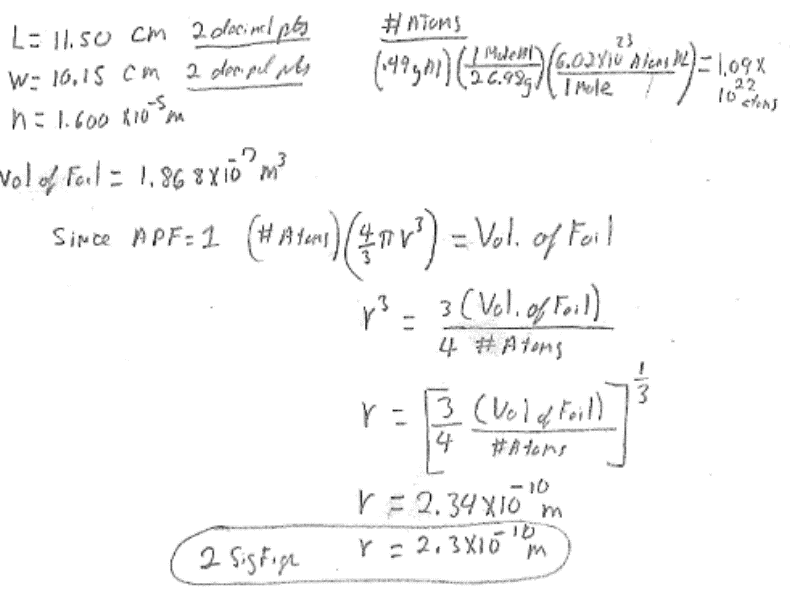 L = 11.50 cm 2 decimal pts
W = 10.15 cm 2 decimal pts
h = 1.600 x10^-5 m
# Atoms
(.49g Al)(1 Mole Al/26.98g)(6.02x10^23 Atoms Al/1 Mole) = 1.09 x 10^22 atoms
Vol of Foil = 1.868x10^-7 m^3
Since APF=1 (# Atoms)(4/3 π r^3) = Vol. of Foil
r^3 = 3 (Vol. of Foil) / 4 # Atoms
r = [3/4 (Vol of Foil)/# Atoms]^1/3
r = 2.34x10^-10 m
2 Sig Figs r = 2.3x10^-10 m